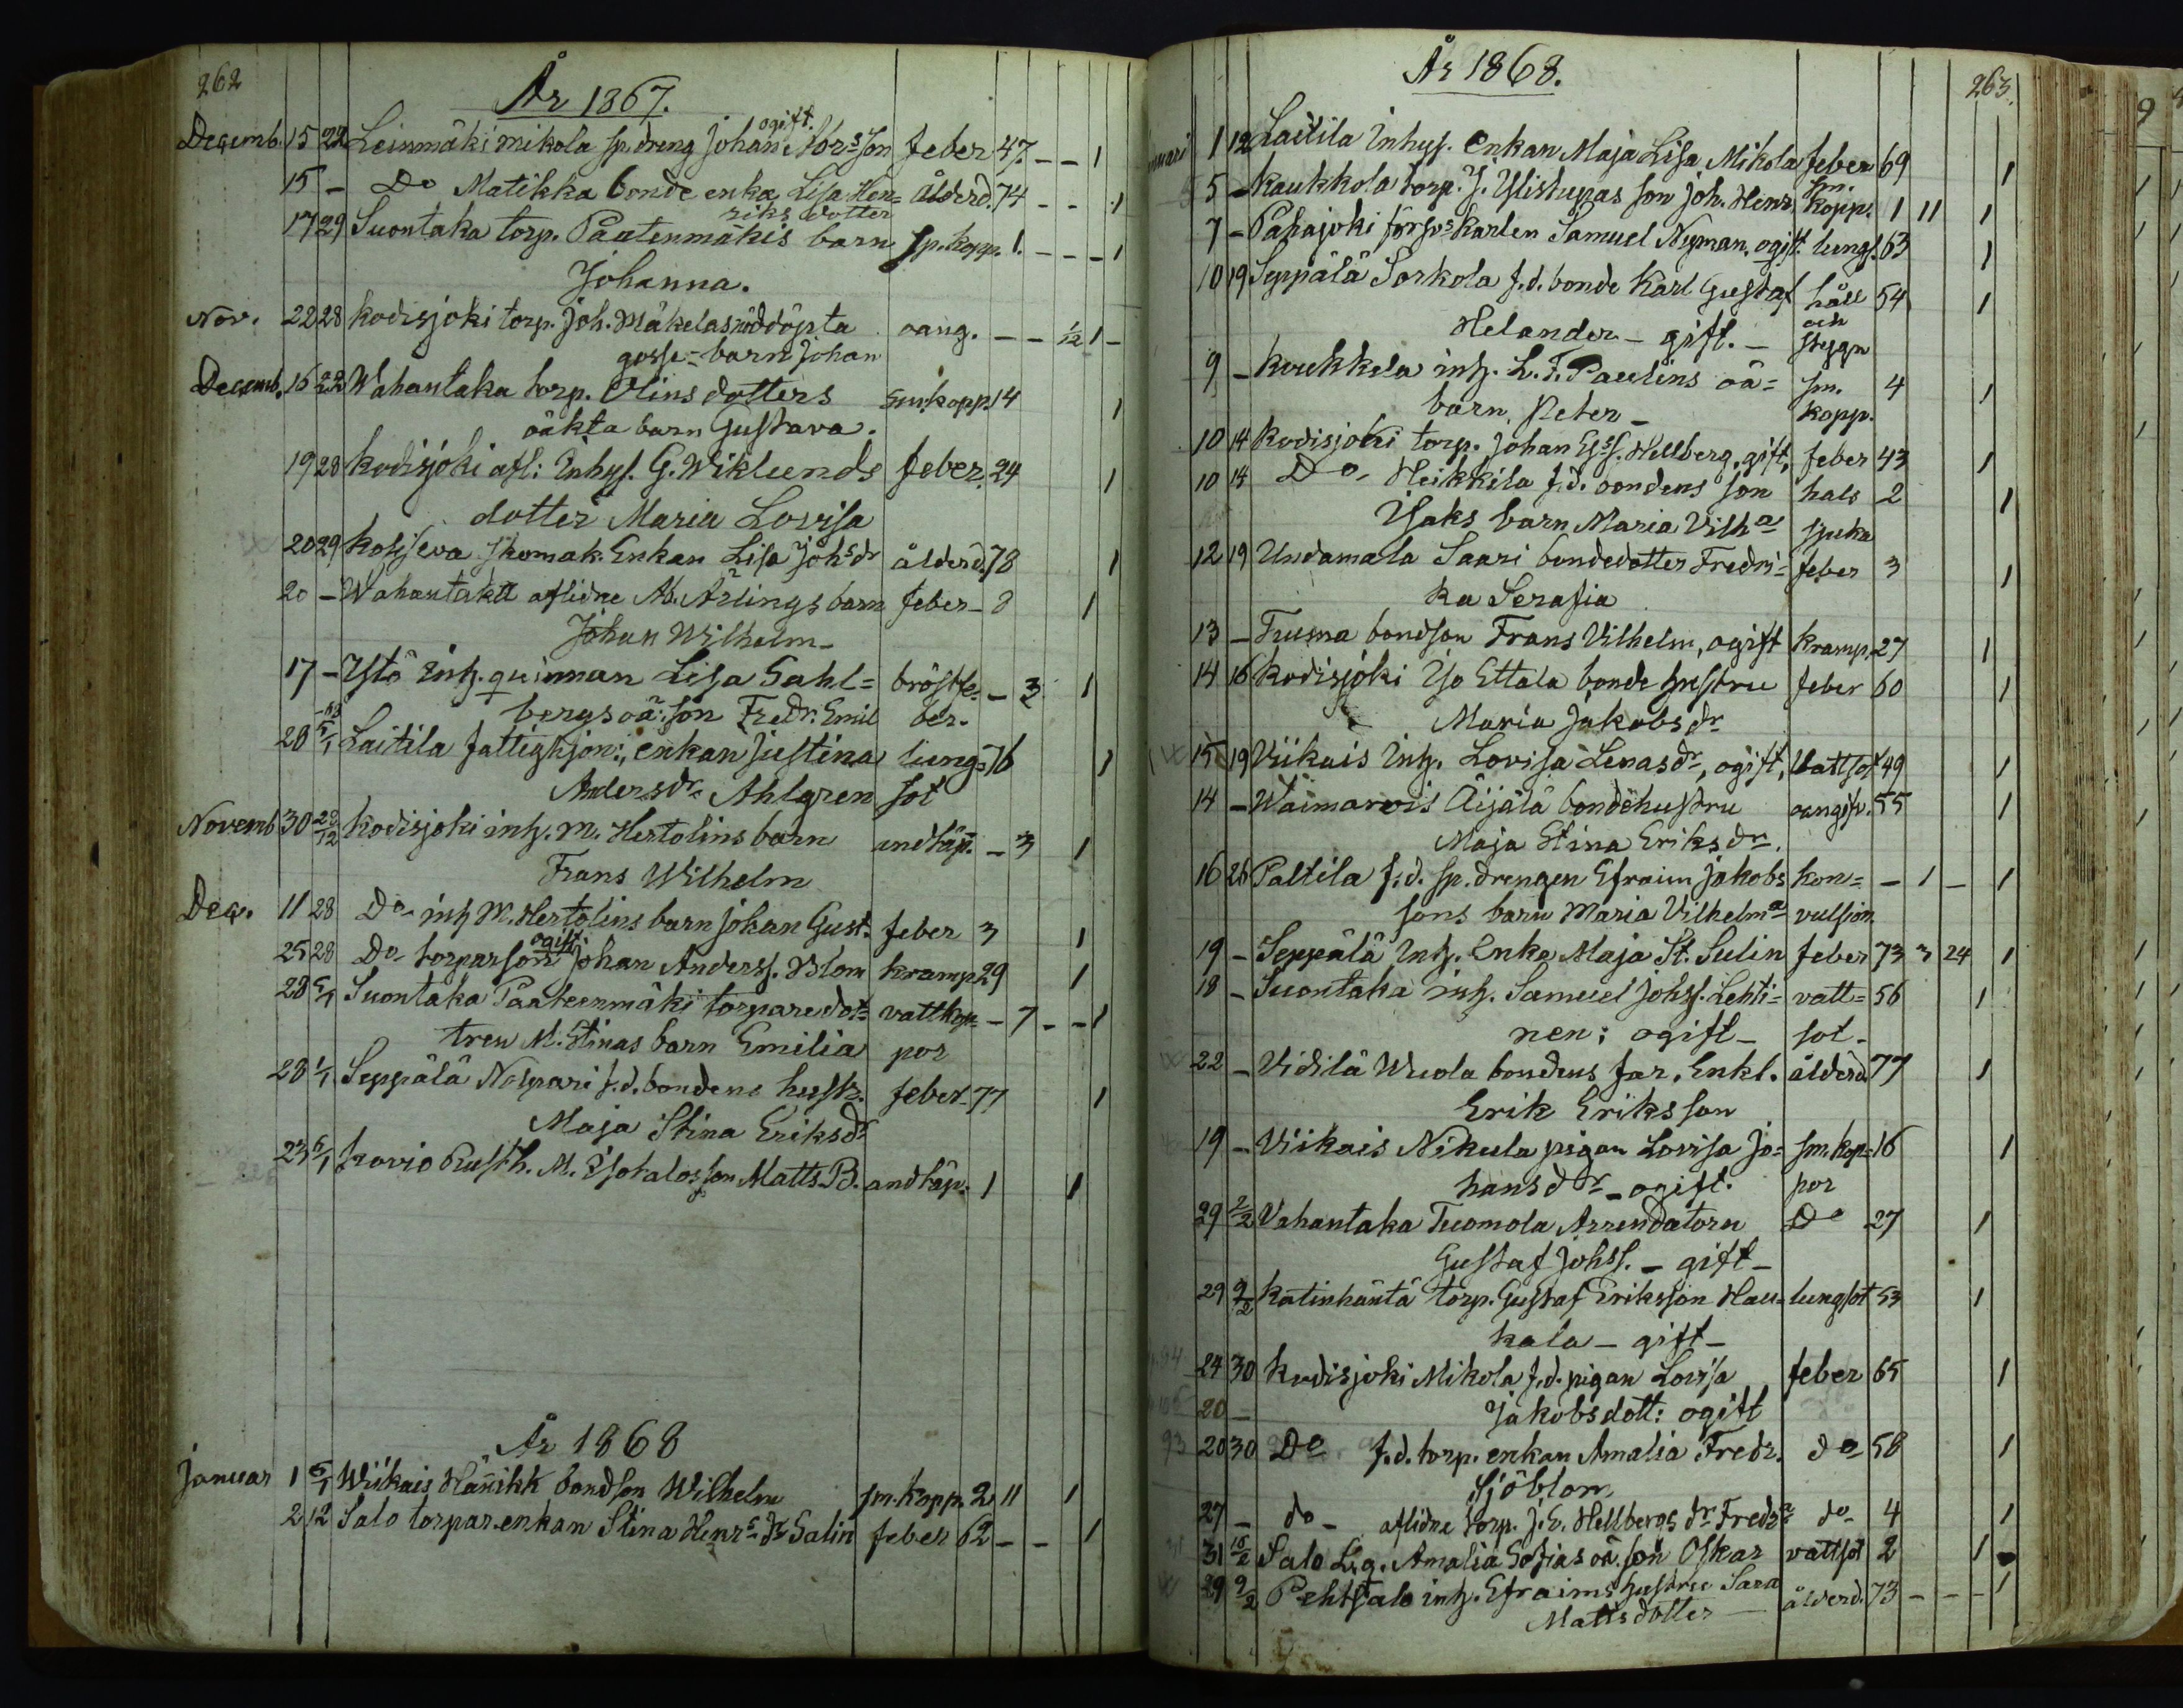 262
År 1867.
ogift.
Decemb. 15 22 Leinmäki Mikola sp. dreng Johan Abr:s son feber 47 - - 1
15 - Do Matikka bonde enka Lisa Hen= ålderd. 74 - - 1
riks dotter
17 29 Suontaka torp. Paatenmäkis barn sp. kopp. 1. - - - 1
Johanna.
Nov. 22 28 Kodisjoki torp. Joh. Mäkelas nöddöpta oang. - - 1/12 1 -
gosse-barn Johan
Decemb. 16 22 Wahantaka torp. Olins dotters sm.kopp. 14 1
oäkta barn Gustava.
19 28 Kodisjoki afl: Inhys. G. Wiklunds feber. 24 1
dotter Maria Lovisa
20 29 Enkan Lisa Joh:s dr ålderd. 78 1
20 - Wahantaka aflidne Ab. Ärlings barn feber - 8 1
Johan Wilhelm -
17 - Ystö inh. quinnan Lisa Sahl= bröstfe= - 3 1
bergs oä. son Fredr. Emil ber.
-68
28 5/1 Laitila fattighjon:, enkan Justina lung= 76 1
Andersdr. Ahlgren sot
Novemb. 30 28/12 Kodisjoki inh. M. Hertolins barn andtäp. - 3 1
Frans Wilhelm
Dec. 11 28 Do inh M. Hertolins barn Johan Gust. feber 3 1
ogift
25 28 Do torparson Johan Anderss. Blom kramp 29 1
28 5/1 Suontaka Paateenmäki torpare dot= vattkop= - 7 - - 1
tren M. Stinas barn Emilia por
28 1/1 Seppälä Nolpari f.d. bondens hustr. feber - 77 1
Maja Stina Eriksdr
23 6/1 Kovio Rusth. M. Isotalos son Matts B. andtäp. 1 1
År 1868
Januar 1 6/1 Wiikais Hännikk bondson Wilhelm sm.kopp. 2 11 1
2 12 Salo torpar-enkan Stina Henr:s dr Salin feber 62 - - 1
År 1868.
263.
1 12 Laitila Inhys. Enkan Maja Lisa Mikola feber 69 1
5 - Kaukkola torp. J. Ylistupas son Joh. Henr. sm. kopp. 1 11 1
7 - Pahajoki försvs karlen Samuel Nyman. ogift. lungs. 63 1
10 19 Seppälä Sorkola f.d. bonde Karl Gustaf håll 54 1
Helander - gift. - och stygn
9 - Koukkela inh. L. F. Paulins oä= sm. 4 1
barn Peter - kopp.
10 14 Kodisjoki torp. Johan Gs. Hellberg, gift, feber 43 1
10 14 Do - Heikkila f.d. bondens son hals 2 1
Isaks barn Maria Vilh:a sjuka
12 19 Undamala Saari bondedotter Fredri= feber 3 1
ka Serafia
13 - Truena bondson Frans Vilhelm, ogift kramp. 27 1
14 16 Kodisjoki Iso Ettala bonde hustru feber 60 1
Maria Jakobs dr
15 19 Viikais Inh. Lovisa Lenasdr, ogift, Vattsot 49 1
14 - Waimarois Äijälä bondehustru oangifv. 55 1
Maja Stina Eriksdr.
16 26 Paltila f.d. sp. drengen Efraim Jakobs kon= - 1 - 1
sons barn Maria Vilhelm:a vulsion
19 - Seppälä Inh. Enka Maja St. Sulin feber 73 3 24 1
18 - Suontaka inh. Samuel Johss. Lehti= vatt= 56 1
nen; ogift - sot -
22 - Vidilä Wuola bondens far, Enkl. ålderd. 77 1
Erik Eriksson
19 - Viikais Nikula pigan Lovisa Jo= sm.kop= 16 1
hansddr - ogift. por
29 2/2 Vahantaka Tuomola Arrendatorn Do 27 1
Gustaf Johss. - gift -
29 9/2 Katinhäntä torp. Gustaf Eriksson Hau= lungsot 53 1
kala - gift -
24 30 Kodisjoki Mikola f.d. pigan Lovisa feber 65 1
20 - Jakobsdott: ogift
20 30 Do f.d. torp. enkan Amalia Fredr. do 58 1
Sjöblom
27 - do - aflidne torp. J. E. Hellbergs dr Fredr:a do 4 1
31 16/2 Salo L.g. Amalia Sofias oä. son Oskar vattsot 2 1
29 9/2 Pehtsalo inh. Efraims hustru Sara ålderd. 73 - - - 1
Matts dotter -